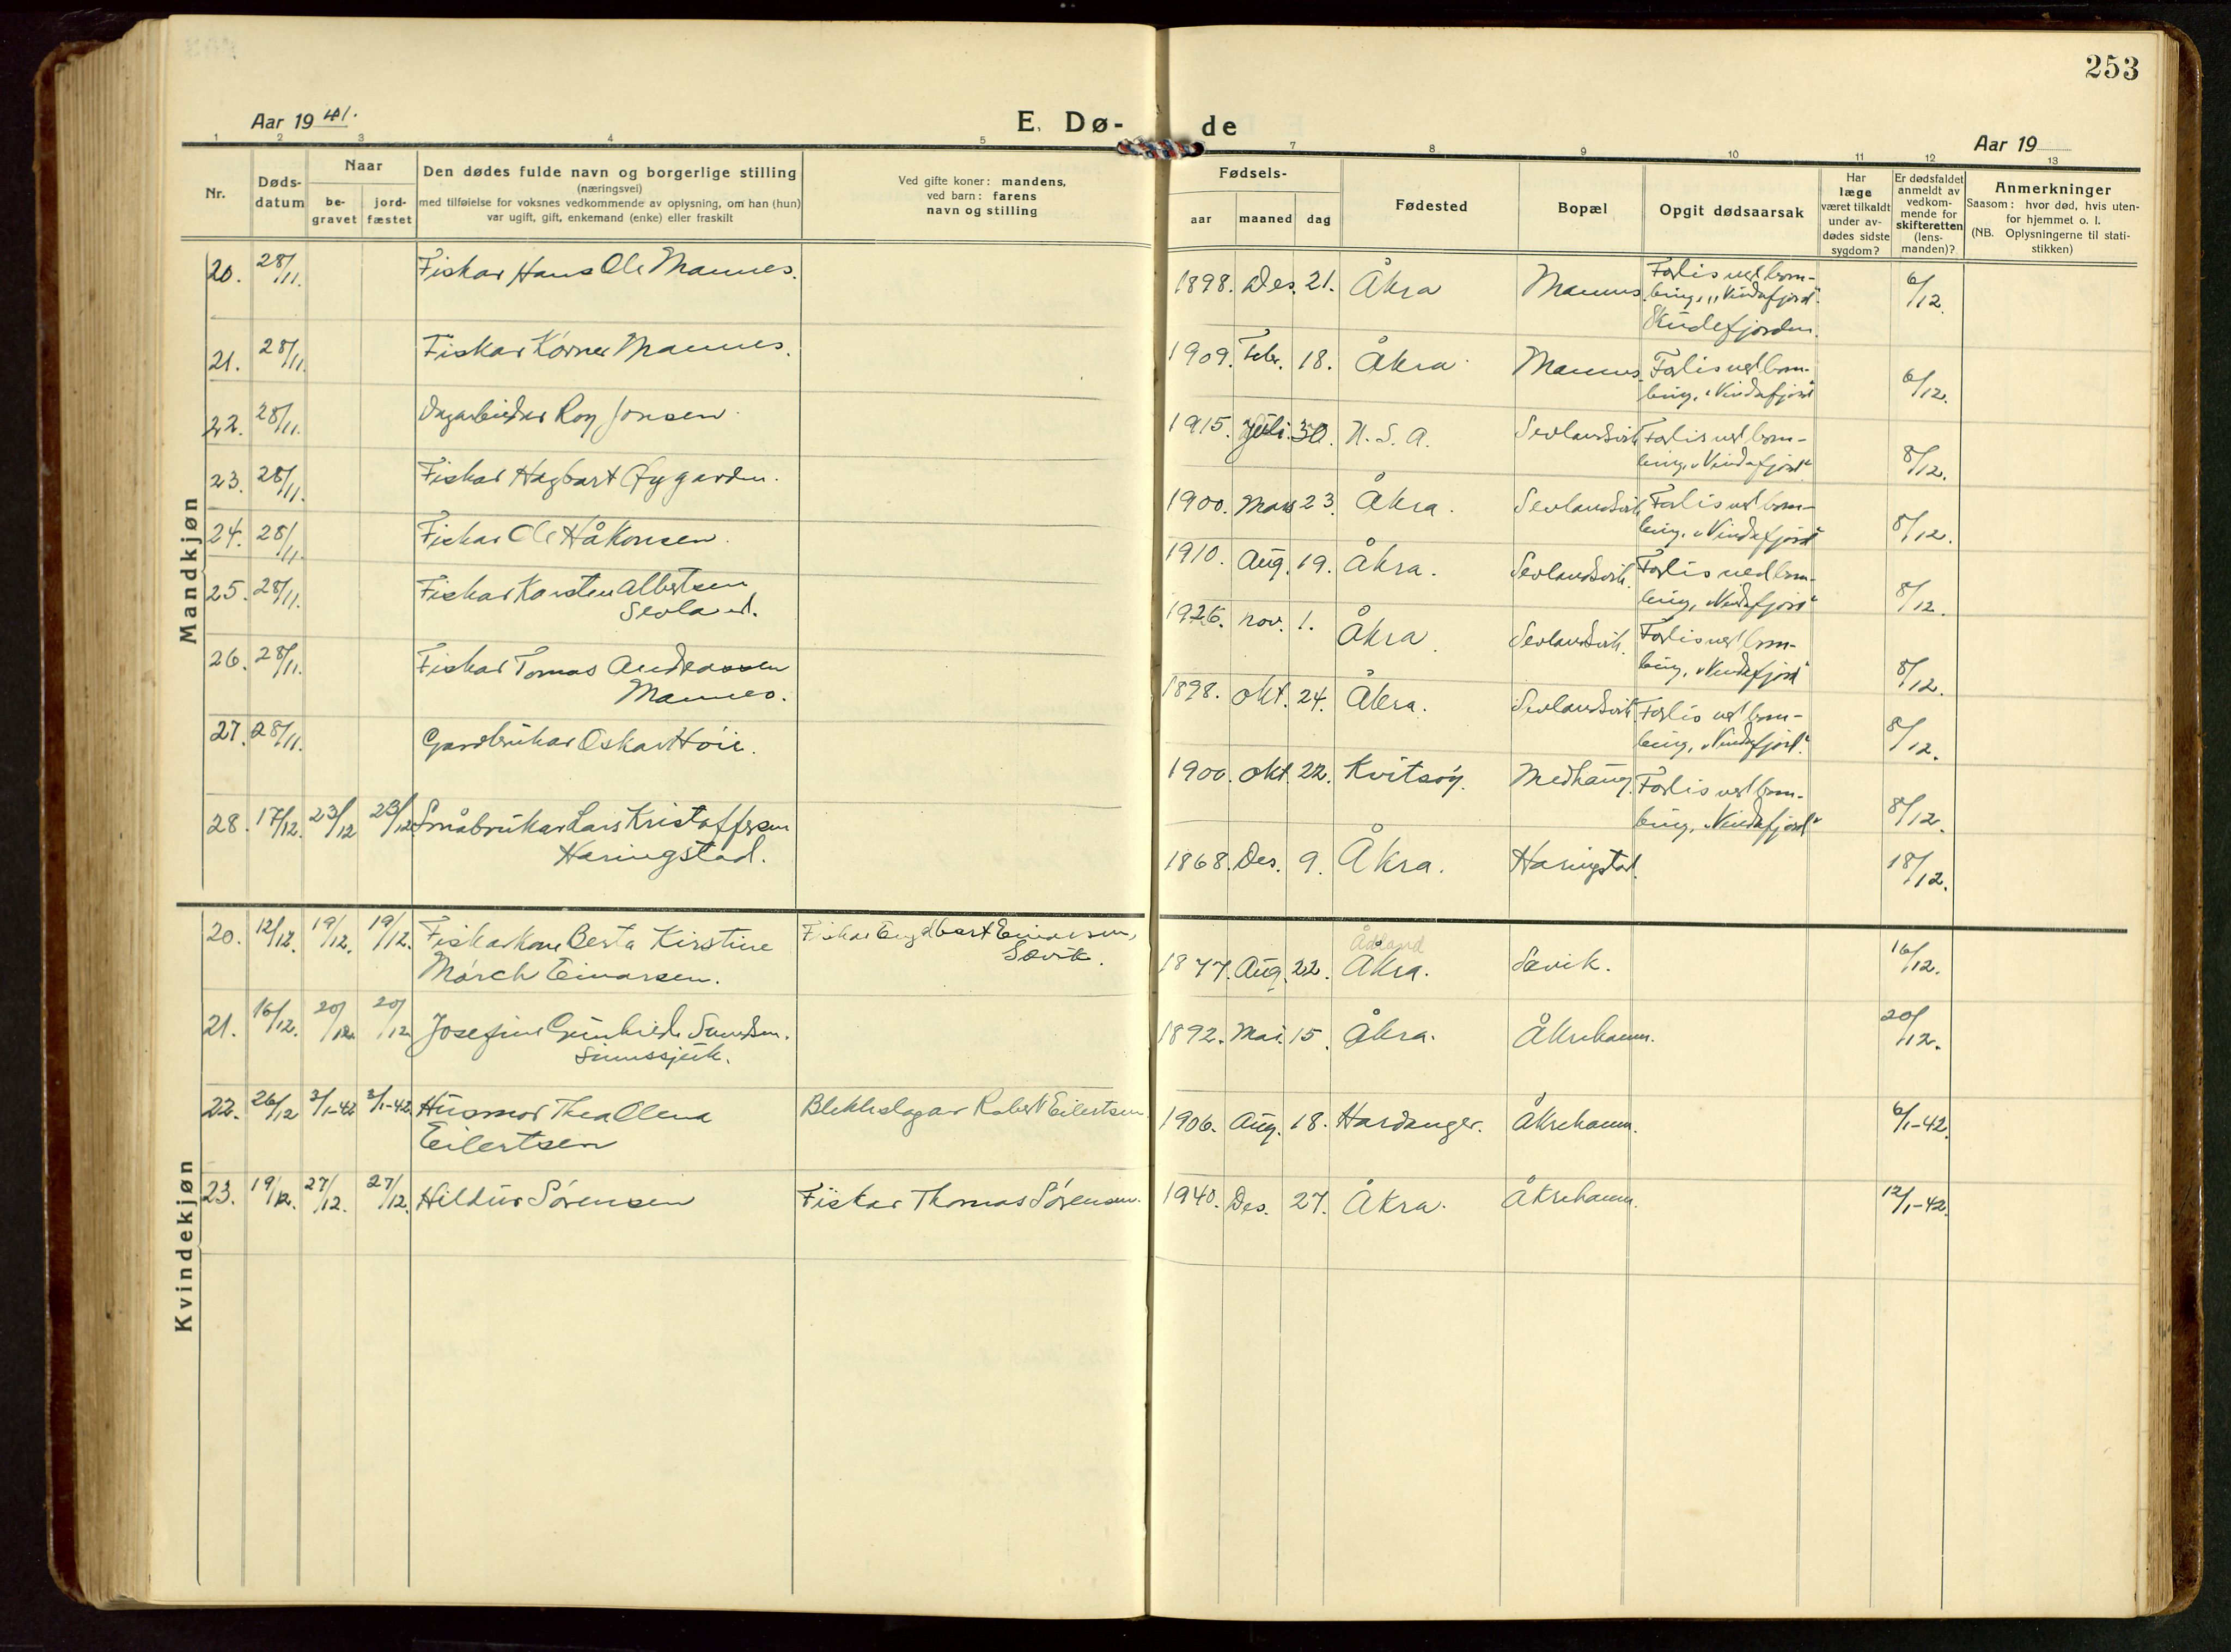 253
Aar 19 41.
E. Dø-
de
Aar 19
1 2 3 4 5 7 8 9 10 11 12 13
Nr.
Døds-
datum
Naar
be-
gravet
jord-
fæstet
Den dødes fulde navn og borgerlige stilling
(næringsvei)
med tilføielse for voksnes vedkommende av oplysning, om han (hun)
var ugift, gift, enkemand (enke) eller fraskilt
Ved gifte koner: mandens,
ved barn: farens
navn og stilling
Fødsels-
aar maaned dag
Fødested
Bopæl
Opgit dødsaarsak
Har
læge
været tilkaldt
under av-
dødes sidste
sygdom?
Er dødsfaldet
anmeldt av
vedkom-
mende for
skifteretten
(lens-
manden)?
Anmerkninger
Saasom: hvor død, hvis uten-
for hjemmet o. l.
(NB. Oplysningerne til stati-
stikken)
Mandkjøn
20. 28/11. Fiskar Hans Ole Mannes. 1898. Des. 21. Åkra Mannes. Forlis ved bom-
bing, "Vindafjord".
Skudefjorden. 6/12.
21. 28/11. Fiskar Körner Mannes. 1909. Febr. 18. Åkra. Mannes. Forlis ved bom-
bing, "Vindafjord" 6/12.
22. 28/11. Dagarbeider Roy Jonsen. 1915. Juli. 30. U. S. A. Sevlandsvik Forlis ved bom-
bing, "Vindafjord" 8/12.
23. 28/11. Fiskar Hagbart Øygarden. 1900. Mars 23. Åkra. Sevlandsvik Forlis ved bom-
bing, "Vindafjord" 8/12.
24. 28/11 Fiskar Ole Håkonsen. 1910. Aug. 19. Åkra. Sevlandsvik. Forlis ved bom-
bing, "Vindafjord" 8/12.
25. 28/11. Fiskar Karsten Albertsen
Sevland. 1926. nov. 1. Åkra. Sevlandsvik. Forlis ved bom-
bing, "Vindafjord" 8/12.
26. 28/11. Fiskar Tomas Andreassen
Mannes. 1898. okt. 24. Åkra. Sevlandsvik Forlis ved bom-
bing, "Vindafjord". 8/12.
27. 28/11. Gardbrukar Oskar Höie. 1900. okt. 22. Kvitsöy. Medhaug. Forlis ved bom-
bing, "Vindafjord" 8/12.
28. 17/12. 23/12 23/12 Småbrukar Lars Kristoffersen
Haringstad. 1868. Des. 9. Åkra. Haringstad. 18/12.
Kvindekjøn
20. 12/12. 19/12. 19/12. Fiskarkone Berta Kirstine
Mörch Einarsen. Fiskar Engelbart Einarsen,
Sævik. 1877. Aug. 22. Ådland
Åkra. Sævik. 16/12.
21. 16/12. 20/12. 20/12 Josefine Gunhilde Samdsen.
Sinnssjuk. 1892. Mai. 15. Åkra. Åkrehamn. 20/12.
22. 26/12 3/1-42 3/1-42. Husmor Thea Olena
Eilertsen Blekkslagar Robert Eilertsen. 1906. Aug. 18. Hardanger. Åkrehamn. 6/1-42.
23. 19/12. 27/12. 27/12. Hildur Sörensen Fiskar Thomas Sörensen. 1940. Des. 27. Åkra. Åkrehamn. 12/1-42.